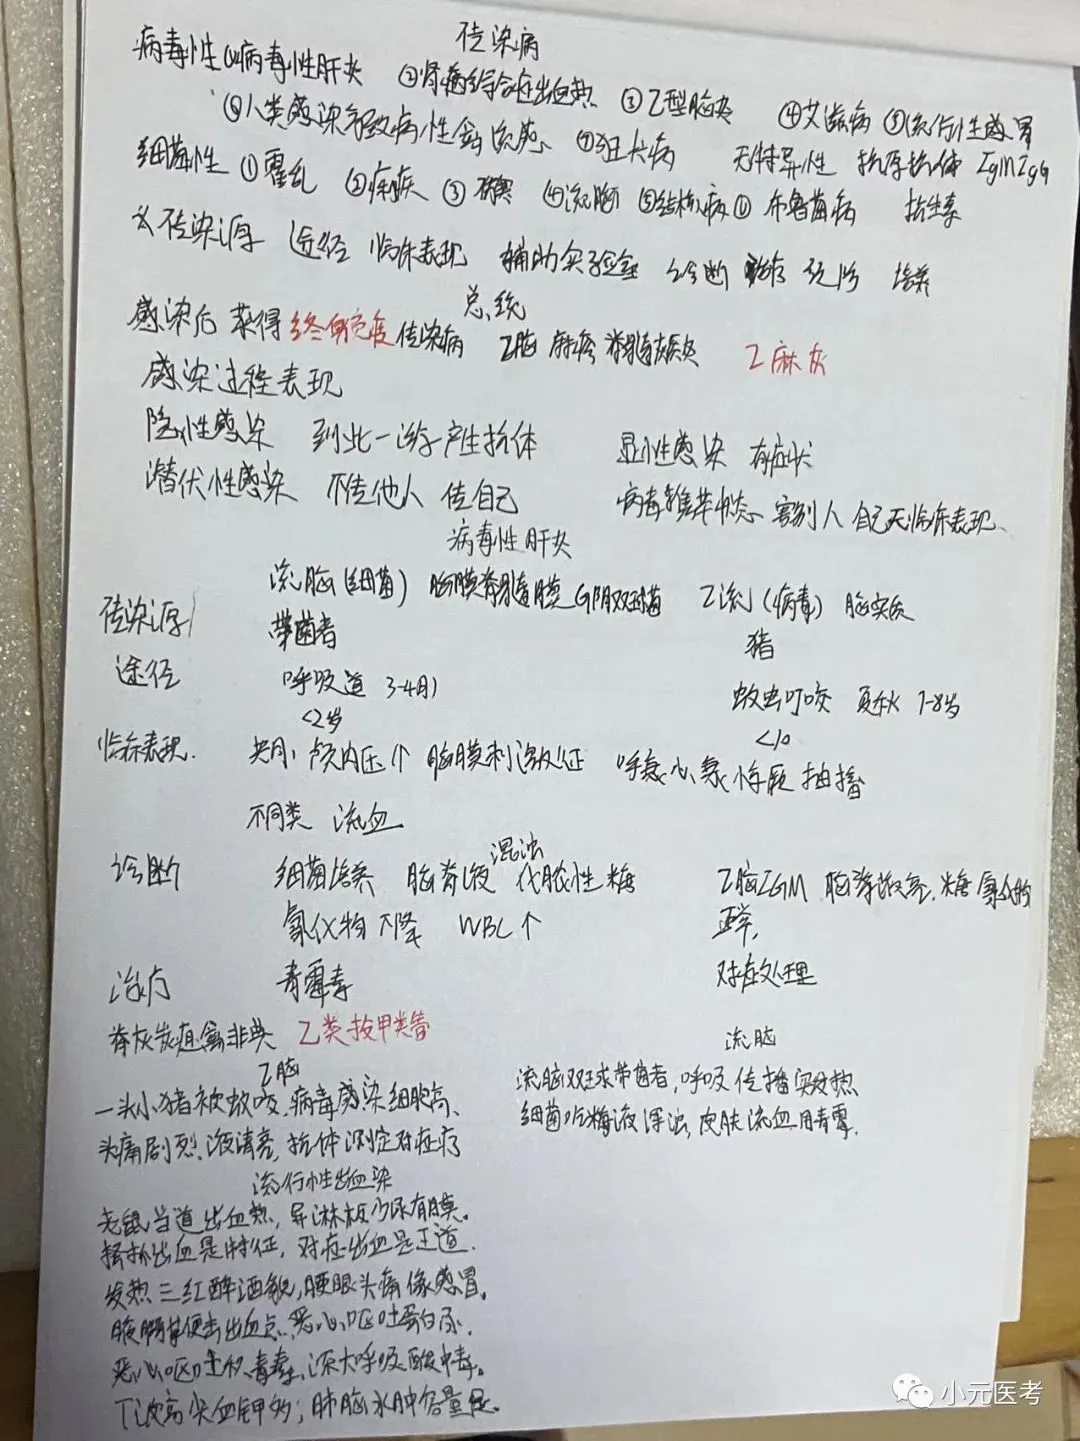 传染病
病毒性 ①病毒性肝炎 ②肾病综合征出血热 ③乙型脑炎 ④艾滋病 ⑤流行性感冒
⑥人类感染致病性禽流感 ⑦狂犬病 无特异性 抗原抗体 IgM IgG
细菌性 ①霍乱 ②痢疾 ③ ④流脑 ⑤结核病 布鲁菌病 抗生素
传染源 途径 临床表现 辅助实验室 诊断 预防 培养
总统
感染后 获得 终身免疫 传染病 乙脑 麻疹 脊髓灰质炎 乙麻灰
感染过程表现
隐性感染 到此一游 产生抗体 显性感染 有症状
潜伏性感染 不传他人 传自己 病毒携带状态 害别人 自己无临床表现、
病毒性肝炎
流脑(细菌) 脑膜脊髓膜 G阴双球菌 乙流(病毒) 脑实质
传染源 带菌者 猪
途径 呼吸道 3-4月 蚊虫叮咬 夏秋 7-8岁
<2岁 <10
临床表现. 颅内压↑ 脑膜刺激征 呼衰 心衰 惊厥 抽搐
不同类 流血
混浊
诊断 细菌培养 脑脊液 化脓性 糖 乙脑IGM 脑脊液亮. 糖 氯化物
氯化物 下降 WBC↑ 正常,
治疗 青霉素 对症处理
脊灰炭疽禽非典 乙类按甲类管 流脑
乙脑
一头小猪被蚊咬,病毒感染细胞高、
头痛剧烈、液清亮,抗体测定对症疗
流脑双球带菌者,呼吸传播突发热
细菌培液浑浊,皮肤流血用青霉.
流行性出血染
老鼠当道出血热,异淋板少尿有膜。
搔抓出血是特征,对症出血是王道.
发热三红醉酒貌,腰眼头痛像感冒。
腋胸出血点,恶心呕吐蛋白尿.
恶心呕吐积毒素,深大呼吸酸中毒。
T波高尖血钾多;肺脑水肿容量
小元医考